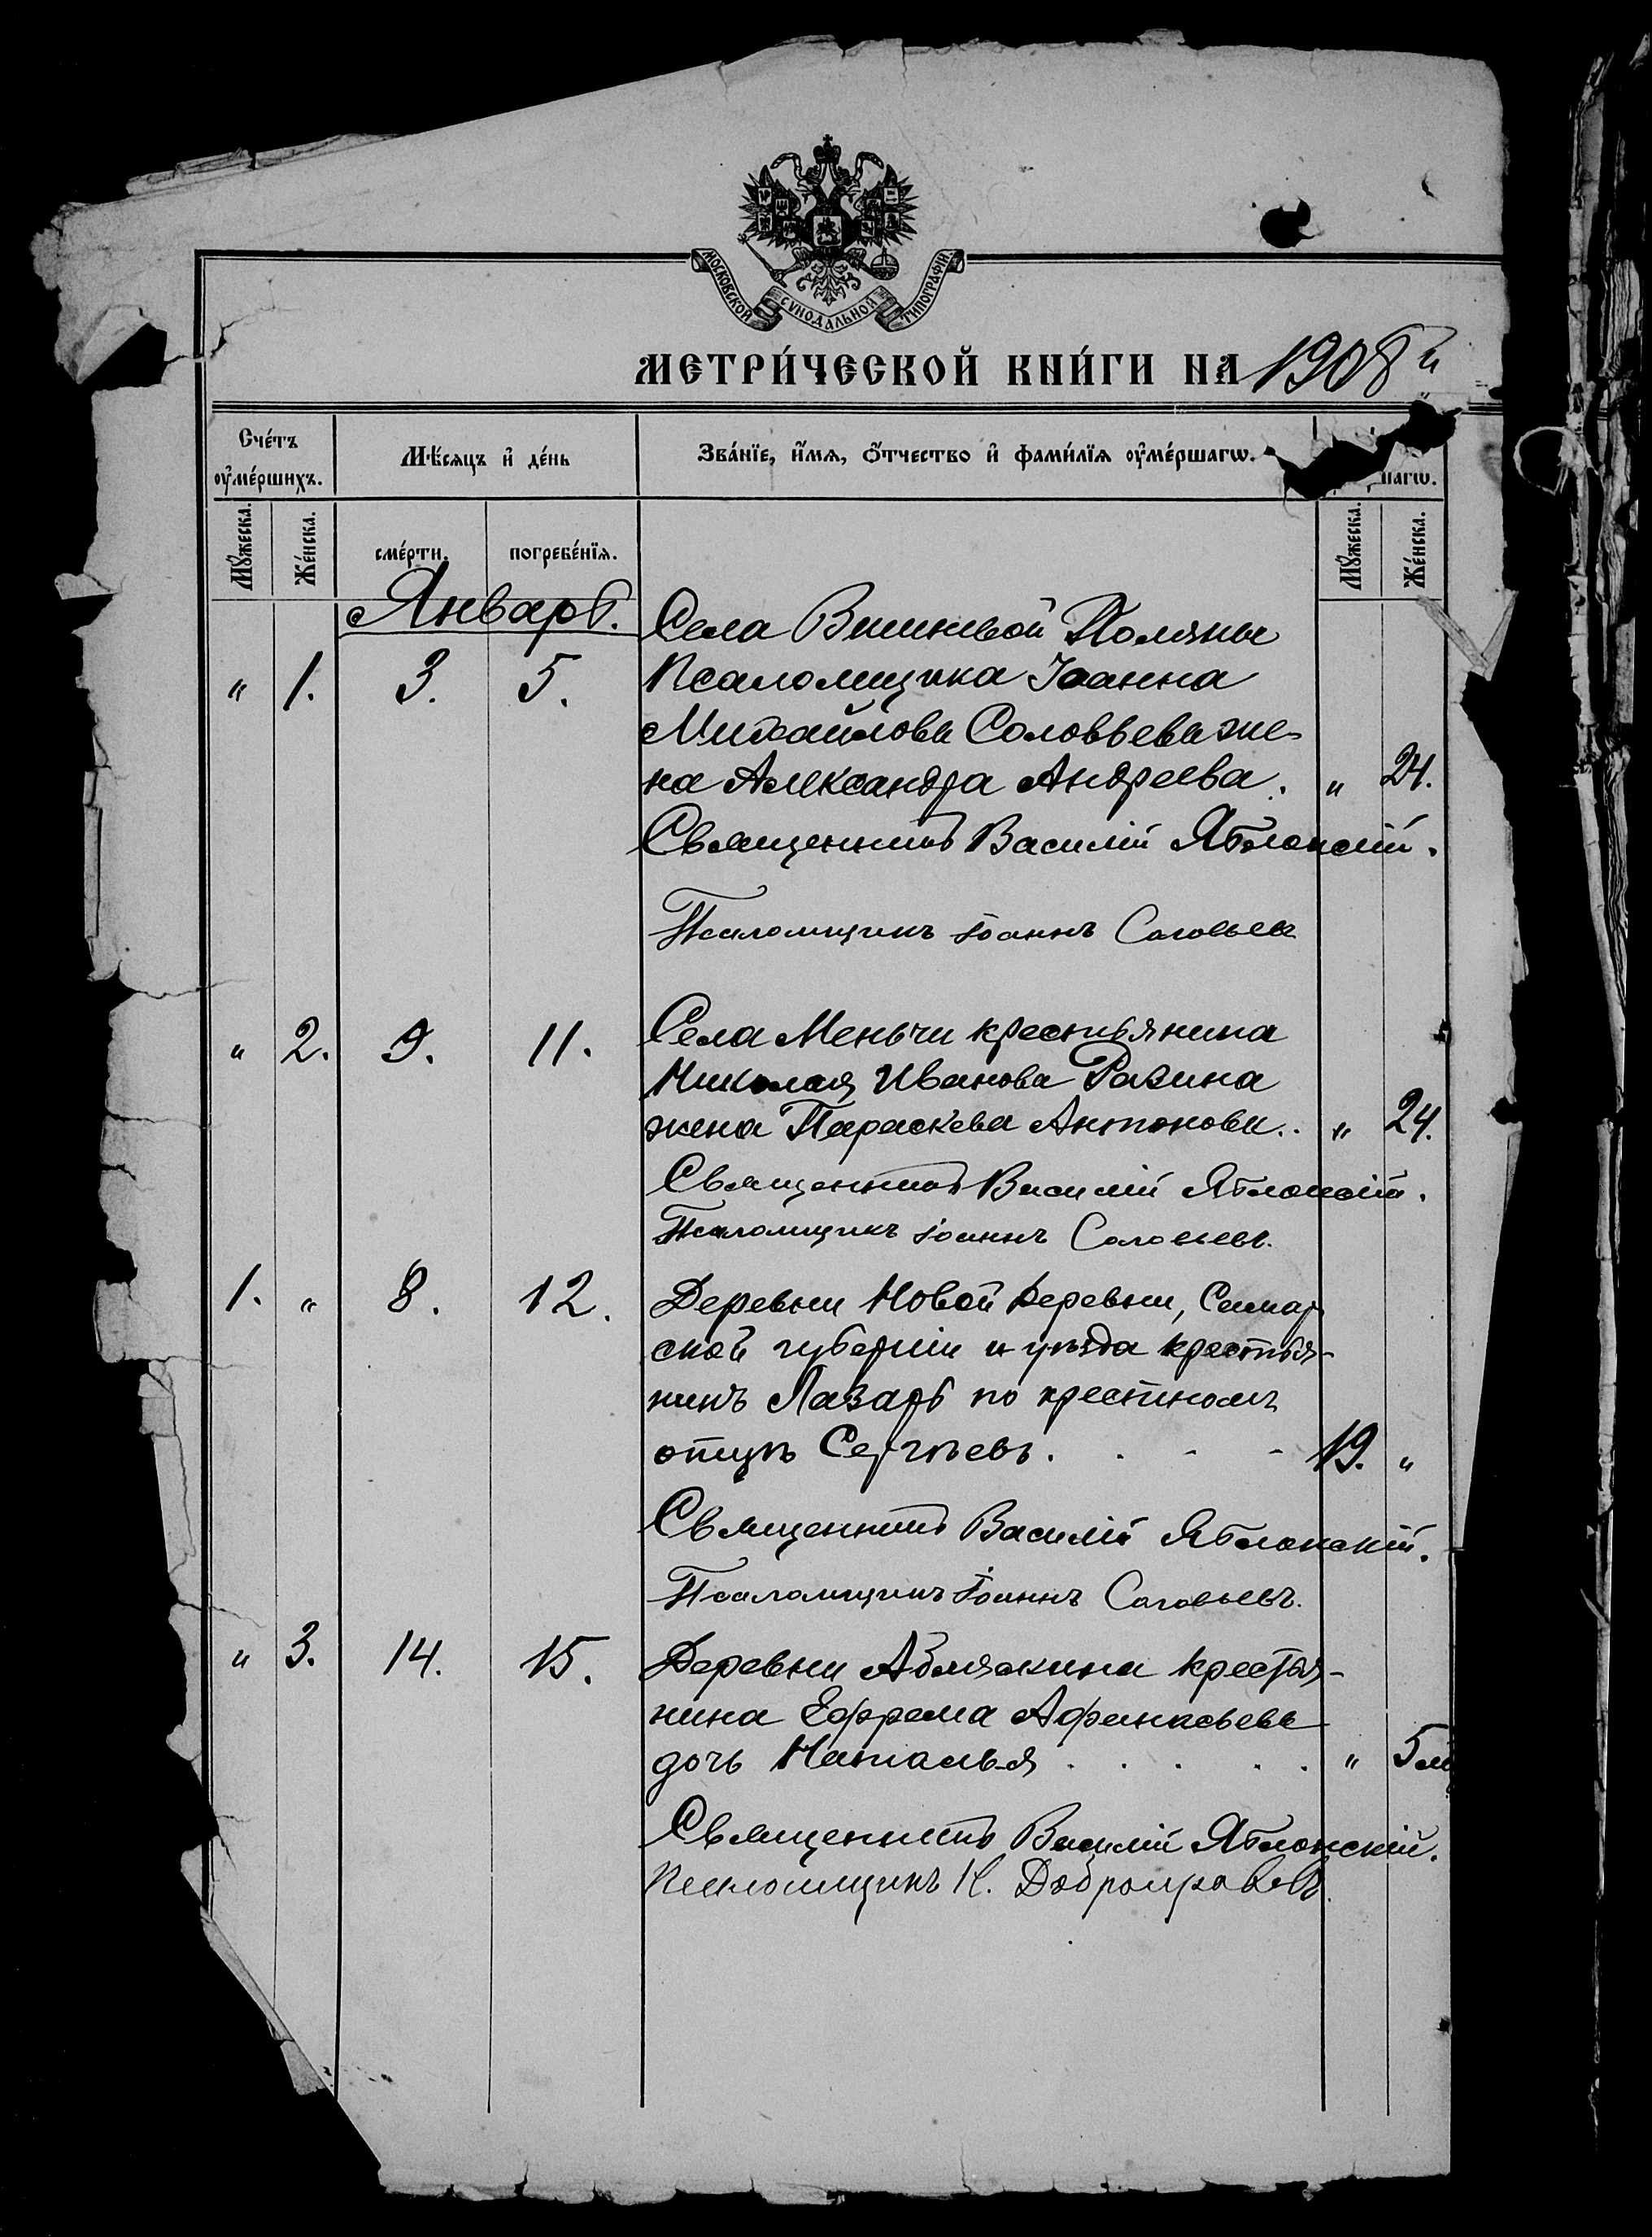 МОСКОВСКОЙ СѴНОДАЛЬНОЙ ТИПОГРАФІИ
МЕТРИ́ЧЕСКОЙ КНИ́ГИ НА 1908й
Сче́тъ оу҆ме́ршихъ.
Мѣ́сяцъ и҆ де́нь
Зва́нїе, и҆́мя, ѻ҆́тчество и҆ фами́лїя оу҆ме́ршагѡ.
Мꙋ́жеска.
Же́нска.
сме́рти.
погребе́нїя.
Мꙋ́жеска.
Же́нска.
Январь.
Села Вишневой Поляны
" 1. 3. 5. Псаломщика Іоанна
Михайлова Соловьева же-
на Александра Андреева. " 24.
Священникъ Василій Яблонскій.
Псаломщикъ Іоаннъ Соловьевъ
" 2. 9. 11. Села Меньчи крестьянина
Николая Иванова Разина
жена Параскева Антонова.. " 24.
Священникъ Василій Яблонскій.
Псаломщикъ Іоаннъ Соловьевъ.
1. " 8. 12. Деревни Новой Деревни, Самар
ской губерніи и уѣзда крестья-
нинъ Лазарь по крестномъ
отцѣ Сергѣевъ. . - - 19. "
Священникъ Василій Яблонскій.
Псаломщикъ Іоаннъ Соловьевъ.
" 3. 14. 15. Деревни Аблязкина крестья-
нина Ефрема Афанасьева
дочь Наталья . . . . . " 5 м
Священникъ Василій Яблонскій.
Псаломщикъ Н. Добронравовъ.